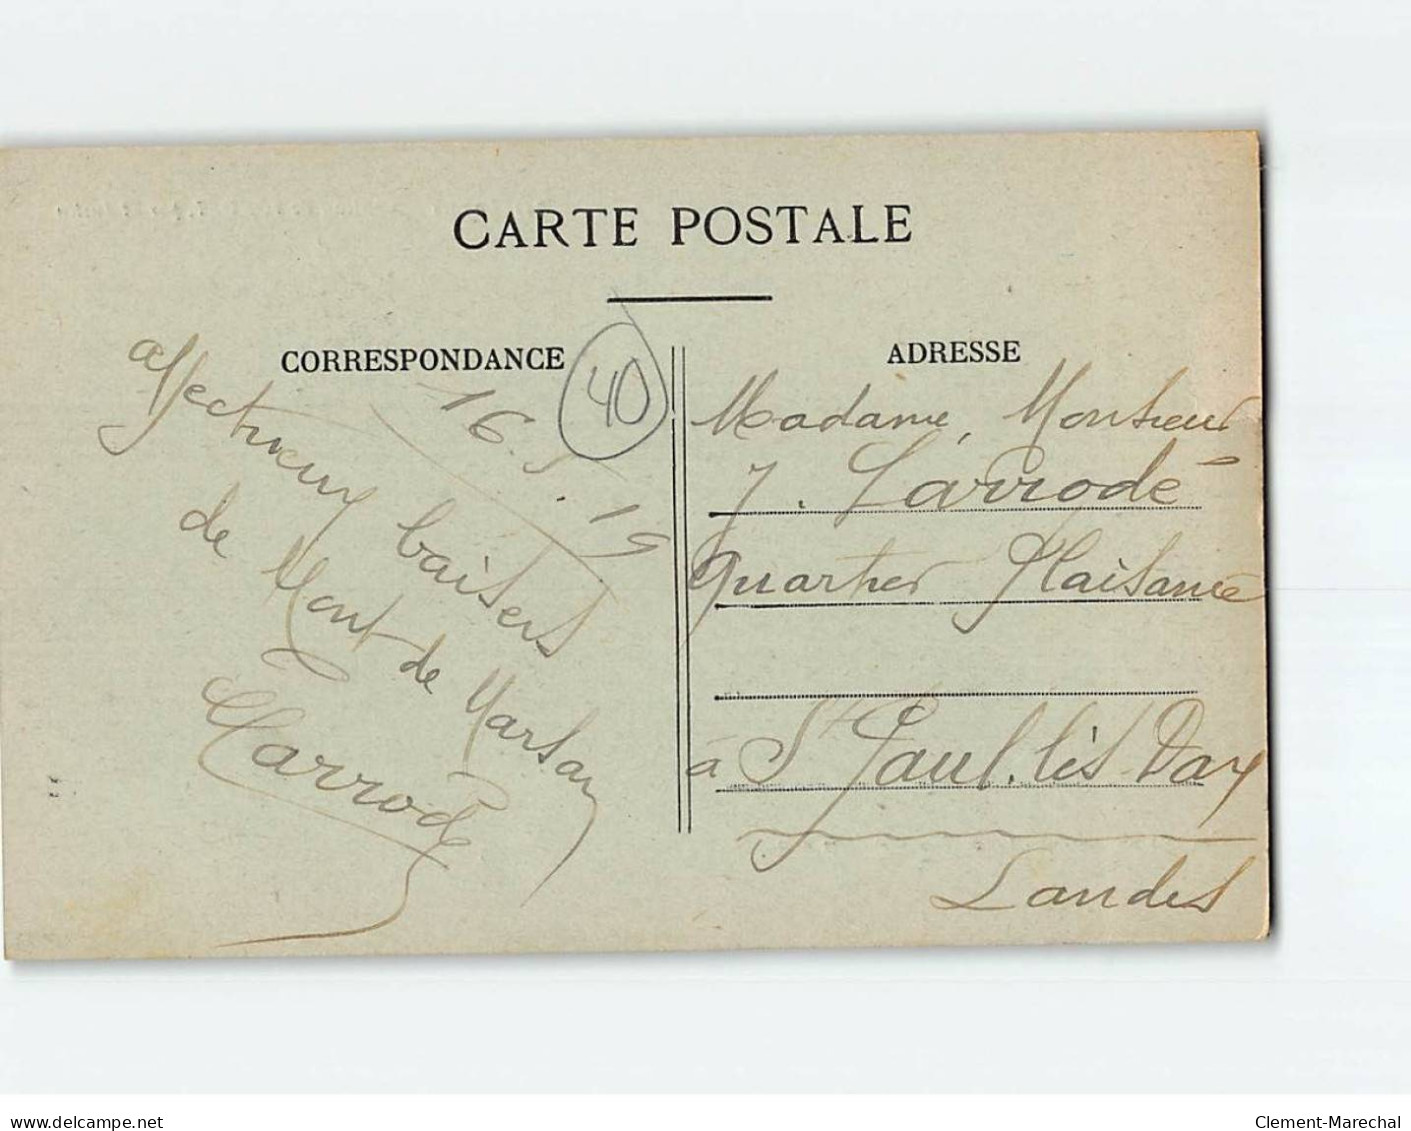 CARTE POSTALE
CORRESPONDANCE
40
16.5.19
affectueux baisers
de Mont de Marsan
Larrodé
ADRESSE
Madame, Monsieur
J. Larrodé
quartier Plaisance
à St Paul. lès Dax
Landes
delcampe.net
Clement-Marechal